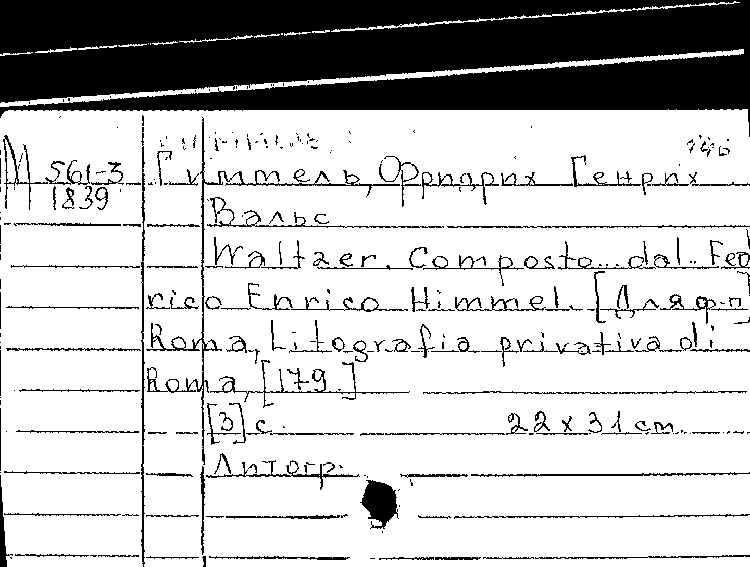 М 561-3 Гиммель, Фридрих Генрих
1839
Вальс
Waltzer. Composto... dal.. Fede
rico Enrico Himmel. [Для ф-п]
Roma, Litografia privativa di
Roma, [179.]
[3] с. 22 x 31 cm.
Литогр.